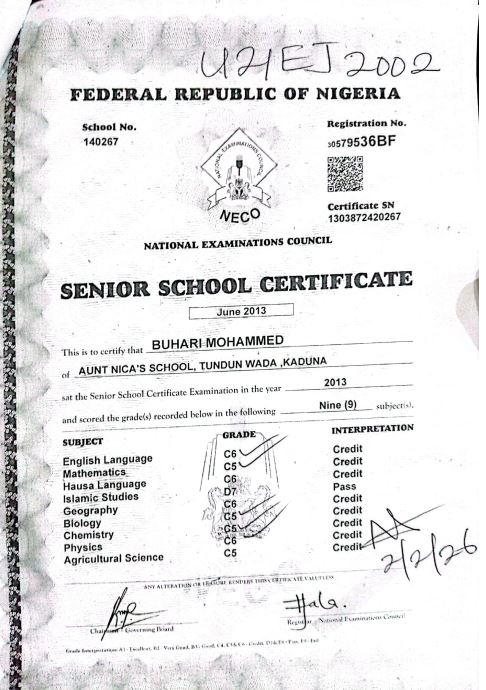 U21EJ2002
FEDERAL REPUBLIC OF NIGERIA
School No.
140267
Registration No.
30579536BF
NATIONAL EXAMINATIONS COUNCIL
NECO
Certificate SN
1303872420267
NATIONAL EXAMINATIONS COUNCIL
SENIOR SCHOOL CERTIFICATE
June 2013
This is to certify that BUHARI MOHAMMED
of AUNT NICA'S SCHOOL, TUNDUN WADA ,KADUNA
sat the Senior School Certificate Examination in the year 2013
and scored the grade(s) recorded below in the following Nine (9) subject(s).
SUBJECT GRADE INTERPRETATION
English Language C6 Credit
Mathematics C5 Credit
Hausa Language C6 Credit
Islamic Studies D7 Pass
Geography C6 Credit
Biology C5 Credit
Chemistry C5 Credit
Physics C6 Credit
Agricultural Science C5 Credit
2/2/26
ANY ALTERATION OR ERASURE RENDERS THIS CERTIFICATE VALUELESS
Chairman - Governing Board
Registrar - National Examinations Council
Grade Interpretation: A1 - Excellent, B2 - Very Good, B3 - Good, C4, C5 & C6 - Credit, D7 & E8 - Pass, F9 - Fail